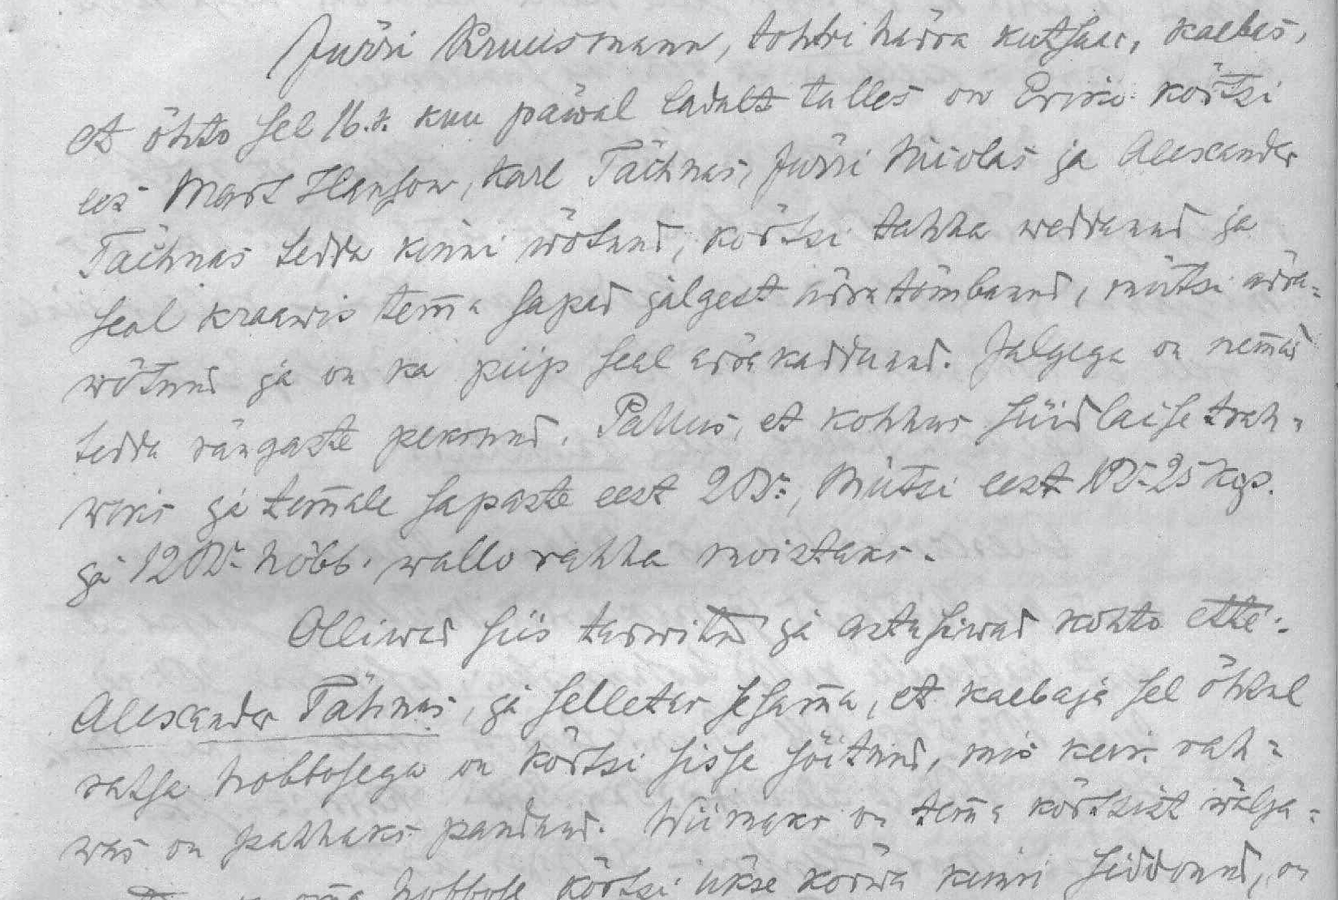 Jürri Kruusmann, tohtri härra kutsaar, kaebas,
et öhto sel 16.t. kuu päiwal ladalt tulles on Erika körtsi
ees Mart Hanson, Karl Tächnas, Jürri Nicolas ja Alexander
Tächnas tedda kinni wötnud, körtsi tahha weddanud ja
seal kraawis tem̅a sapad jalgest ärra tömbanud, mütsi ärra-
wötnud ja on ka piip seal ärra kaddunud. Jalgega on nem̅ad
tedda rängaste peksnud. Pallus, et kohhus süüdlaise trah-
wiks ja tem̅ale sapaste eest 2 Rb., Mütsi eest 1 Rb. 25 Kop.
ja 12 Rb. höbb. wallo rahha moistaks.
Olliwad siis tarwitud ja astusiwad kohto ette:
Alexander Tähnas, ja selletas sesam̅a, et kaebaja sel öhtul
ratsa hobbosega on körtsi sisse söitnud, mis keik rah-
was on pahhaks pandnud. Wiimaks on tem̅a körtsist wälja-
om̅a hobbose körtsi ükse körwa kinni siddonud, on